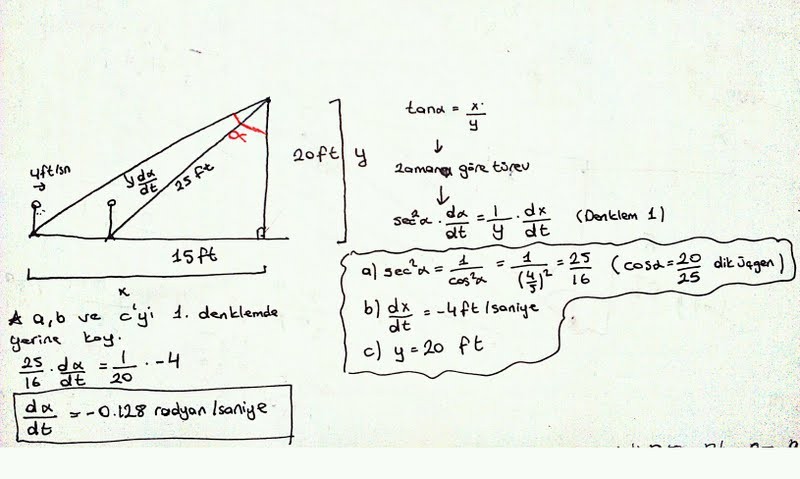 4ft/sn
dα/dt
25 ft
α
20ft
y
15 ft
x
tanα = x/y
↓
zamana göre türev
↓
sec²α · dα/dt = 1/y · dx/dt (Denklem 1)
a) sec²α = 1/cos²α = 1/(4/5)² = 25/16 (cosα = 20/25 dik üçgen)
b) dx/dt = -4ft/saniye
c) y = 20 ft
* a, b ve c'yi 1. denklemde
yerine koy.
25/16 · dα/dt = 1/20 · -4
dα/dt = -0.128 radyan/saniye